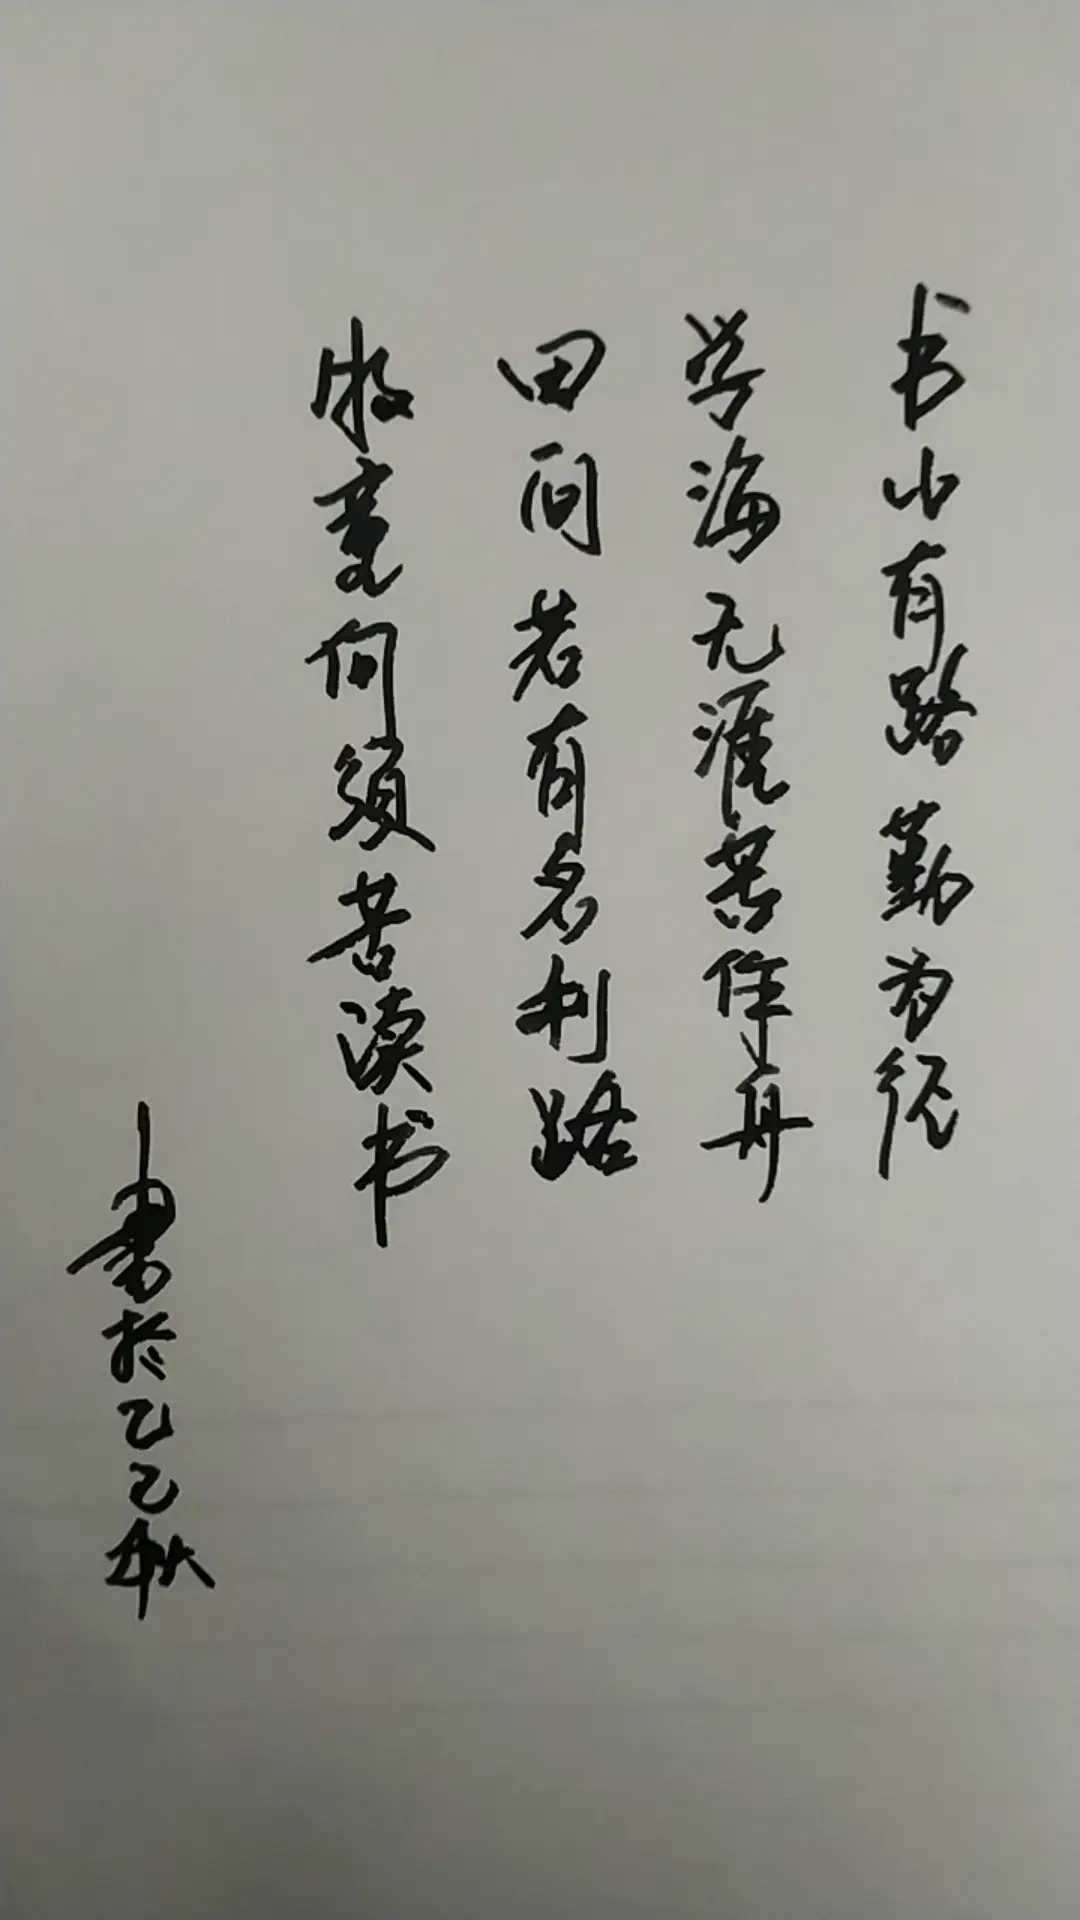 书山有路勤为径
学海无涯苦作舟
田间若有名利路
牧童何须苦读书
书於乙巳秋